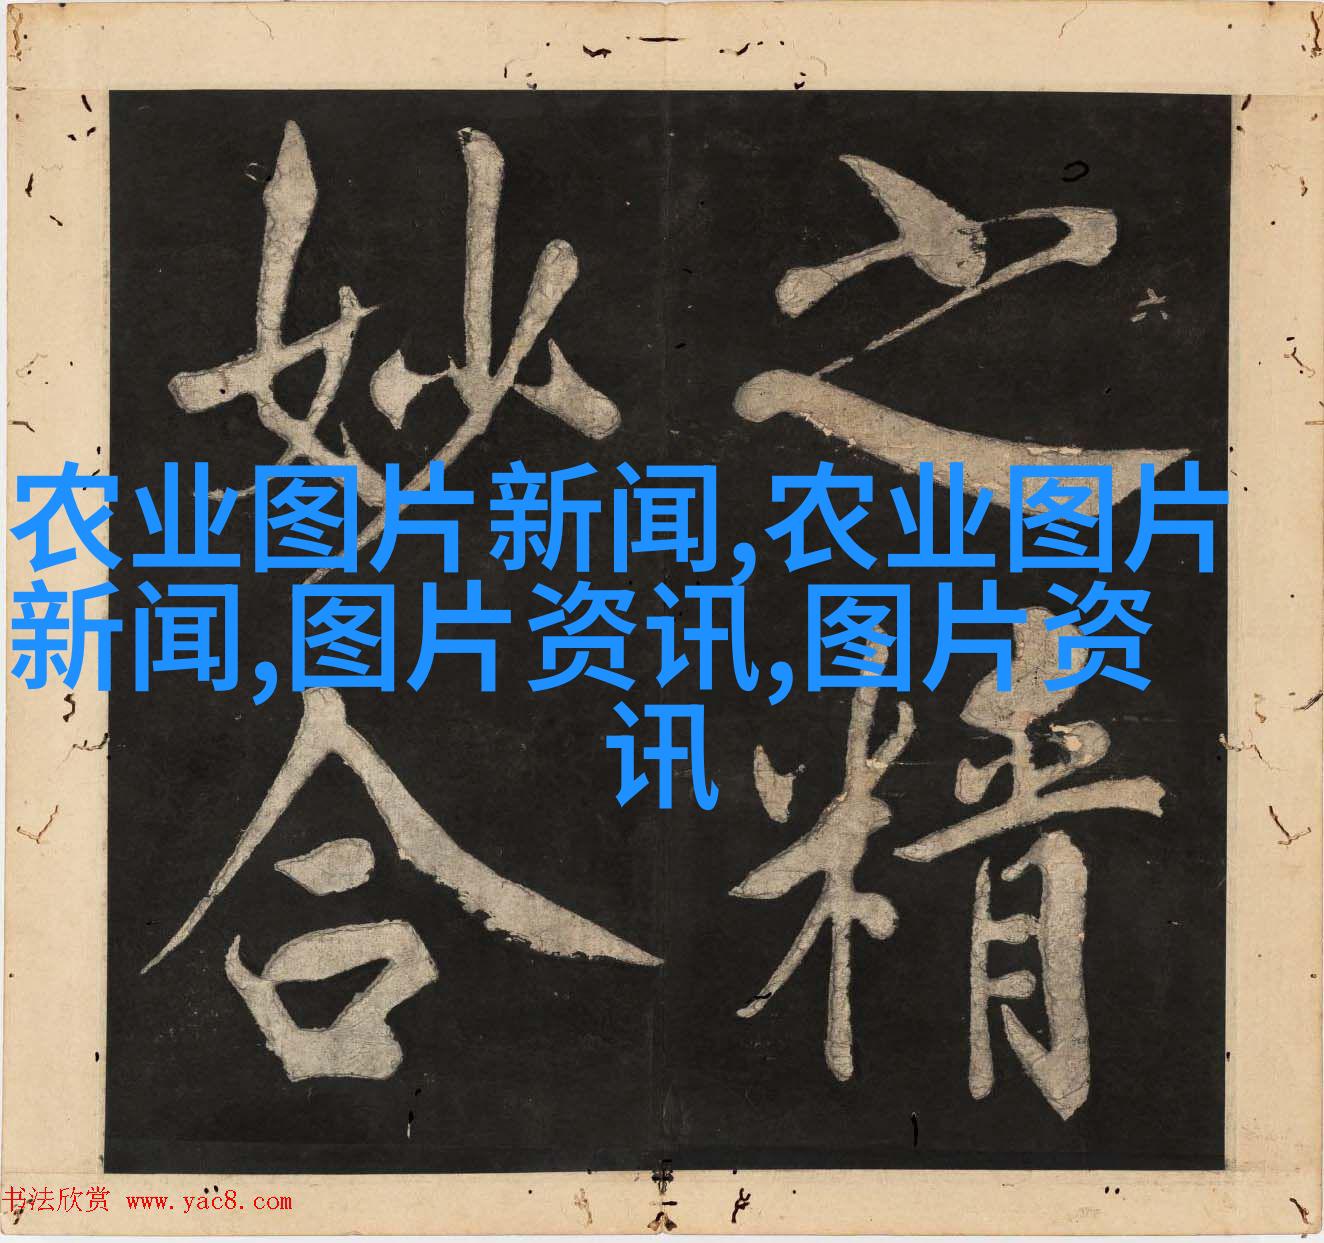 农业图片新闻,农业图片
新闻,图片资讯,图片资
讯
之精
六
妙合
书法欣赏 www.yac8.com